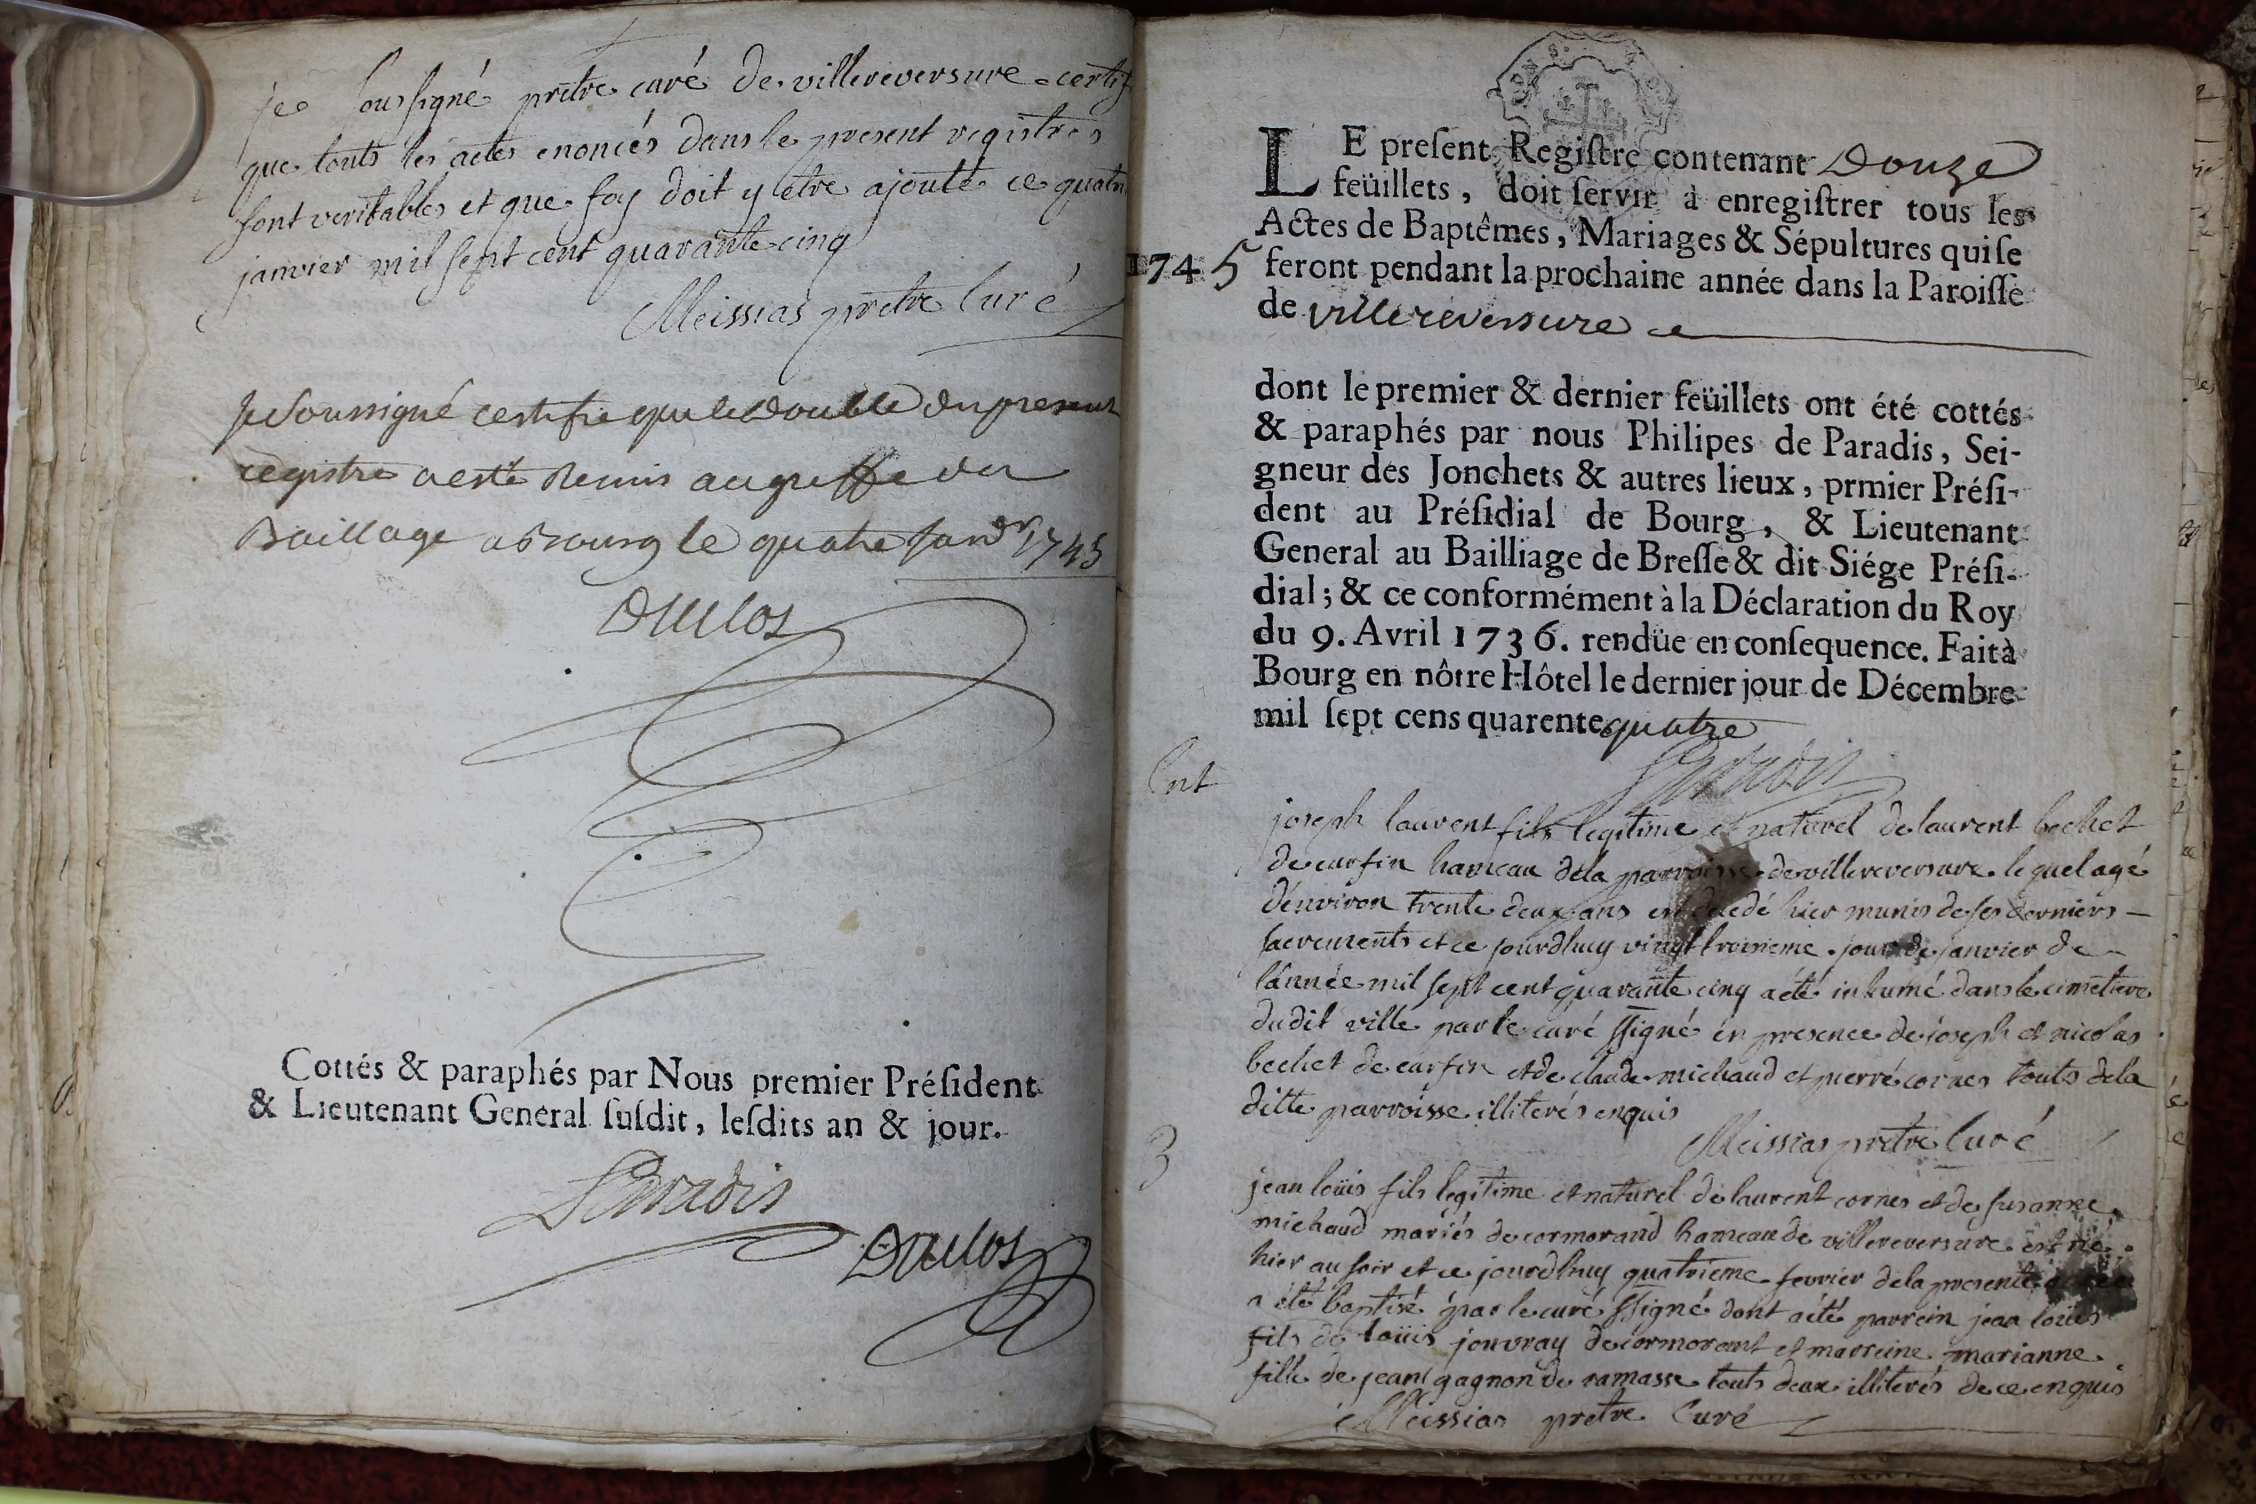 je sousigné prêtre curé de villereversure certif
que touts les actes enoncés dans le present registres
sont veritables et que foy doit y etre ajouté ce quatr
janvier mil sept cent quarante cinq
Meissias prêtre Curé
Je Soussigné certifie que le double du present
registre a esté Remis au greffe du
Baillage a Bourg le quatre Janvr 1745
Duclos
Cottés & paraphés par Nous premier Préſident
& Lieutenant General ſuſdit, leſdits an & jour.
Paradis
Duclos
LE preſent Regiſtre contenant Douze
feüillets, doit ſervir à enregiſtrer tous les
Actes de Baptêmes, Mariages & Sépultures qui ſe
1745 feront pendant la prochaine année dans la Paroiſſe
de Villereversure
dont le premier & dernier feüillets ont été cottés
& paraphés par nous Philipes de Paradis, Sei-
gneur des Jonchets & autres lieux, prmier Préſi-
dent au Préſidial de Bourg, & Lieutenant
General au Bailliage de Breſſe & dit Siége Préſi-
dial ; & ce conformément à la Déclaration du Roy
du 9. Avril 1736. rendüe en conſequence. Fait à
Bourg en nôtre Hôtel le dernier jour de Décembre
mil ſept cens quarente quatre
Paradis
joseph laurent fils legitime et naturel de laurent bechet
de curfin hameau dela parroisse de villereversure lequel agé
d'environ trente deux ans est decedé hier munis de ses derniers
sacrements et ce jourdhuy vingt troisieme jour de janvier de
l'année mil sept cent quarante cinq a été inhumé dans le cimetiere
dudit ville par le curé ssigné en presence de joseph et nicolas
bechet de curfin et de claude michaud et pierre cornes touts dela
ditte parroisse illiterés enquis
Meissias prêtre Curé
3
jean loüis fils legitime et naturel de laurent cornes et de susanne
michaud mariés de cormorand hameau de villereversure est né
hier au soir et ce jourdhuy quatrieme fevrier dela presente année
a été baptisé par le curé ssigné dont a été parrein jean loüis
fils de loüis jouvray de cormorant et marreine marianne
fille de jean gagnon de ramasse touts deux illiterés de ce enquis
Meissias prêtre Curé